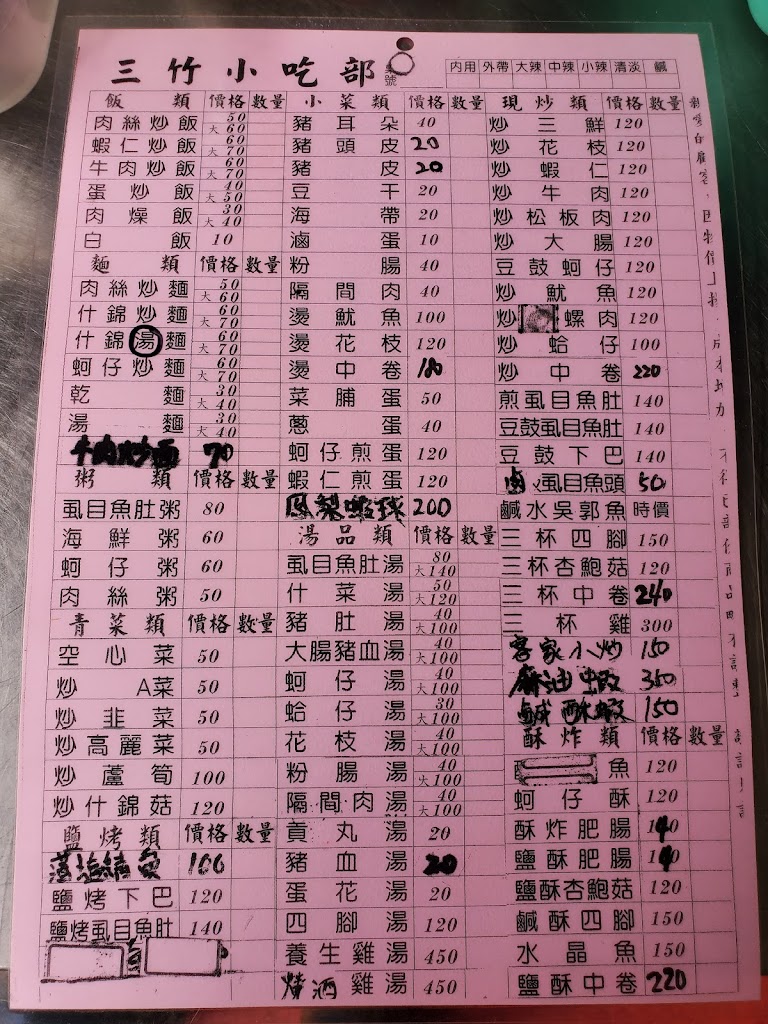 三竹小吃部
桌號
內用 外帶 大辣 中辣 小辣 清淡 鹹
飯類 價格 數量
肉絲炒飯 50 大60
蝦仁炒飯 60 大70
牛肉炒飯 60 大70
蛋炒飯 40 大50
肉燥飯 30 大40
白飯 10
麵類 價格 數量
肉絲炒麵 50 大60
什錦炒麵 60 大70
什錦湯麵 60 大70
蚵仔炒麵 60 大70
乾麵 30 大40
湯麵 30 大40
牛肉炒面 70
粥類 價格 數量
虱目魚肚粥 80
海鮮粥 60
蚵仔粥 60
肉絲粥 50
青菜類 價格 數量
空心菜 50
炒A菜 50
炒韭菜 50
炒高麗菜 50
炒蘆筍 100
炒什錦菇 120
鹽烤類 價格 數量
魚 100
鹽烤下巴 120
鹽烤虱目魚肚 140
小菜類 價格 數量
豬耳朵 40
豬頭皮 20
豬皮 20
豆干 20
海帶 20
滷蛋 10
粉腸 40
隔間肉 40
燙魷魚 100
燙花枝 120
燙中卷 180
菜脯蛋 50
蔥蛋 40
蚵仔煎蛋 120
蝦仁煎蛋 120
鳳梨蝦球 200
湯品類 價格 數量
虱目魚肚湯 80 大140
什菜湯 50 大120
豬肚湯 40 大100
大腸豬血湯 40 大100
蚵仔湯 40 大100
蛤仔湯 30 大100
花枝湯 40 大100
粉腸湯 40 大100
隔間肉湯 40 大100
貢丸湯 20
豬血湯 20
蛋花湯 20
四腳湯 120
養生雞湯 450
燒酒雞湯 450
現炒類 價格 數量
炒三鮮 120
炒花枝 120
炒蝦仁 120
炒牛肉 120
炒松板肉 120
炒大腸 120
豆鼓蚵仔 120
炒魷魚 120
炒螺肉 120
炒蛤仔 100
炒中卷 220
煎虱目魚肚 140
豆鼓虱目魚肚 140
豆鼓下巴 140
虱目魚頭 50
鹹水吳郭魚 時價
三杯四腳 150
三杯杏鮑菇 120
三杯中卷 240
三杯雞 300
客家小炒 150
麻油蝦 350
鹹酥蝦 150
酥炸類 價格 數量
魚 120
蚵仔酥 120
酥炸肥腸 140
鹽酥肥腸 140
鹽酥杏鮑菇 120
鹹酥四腳 150
水晶魚 150
鹽酥中卷 220